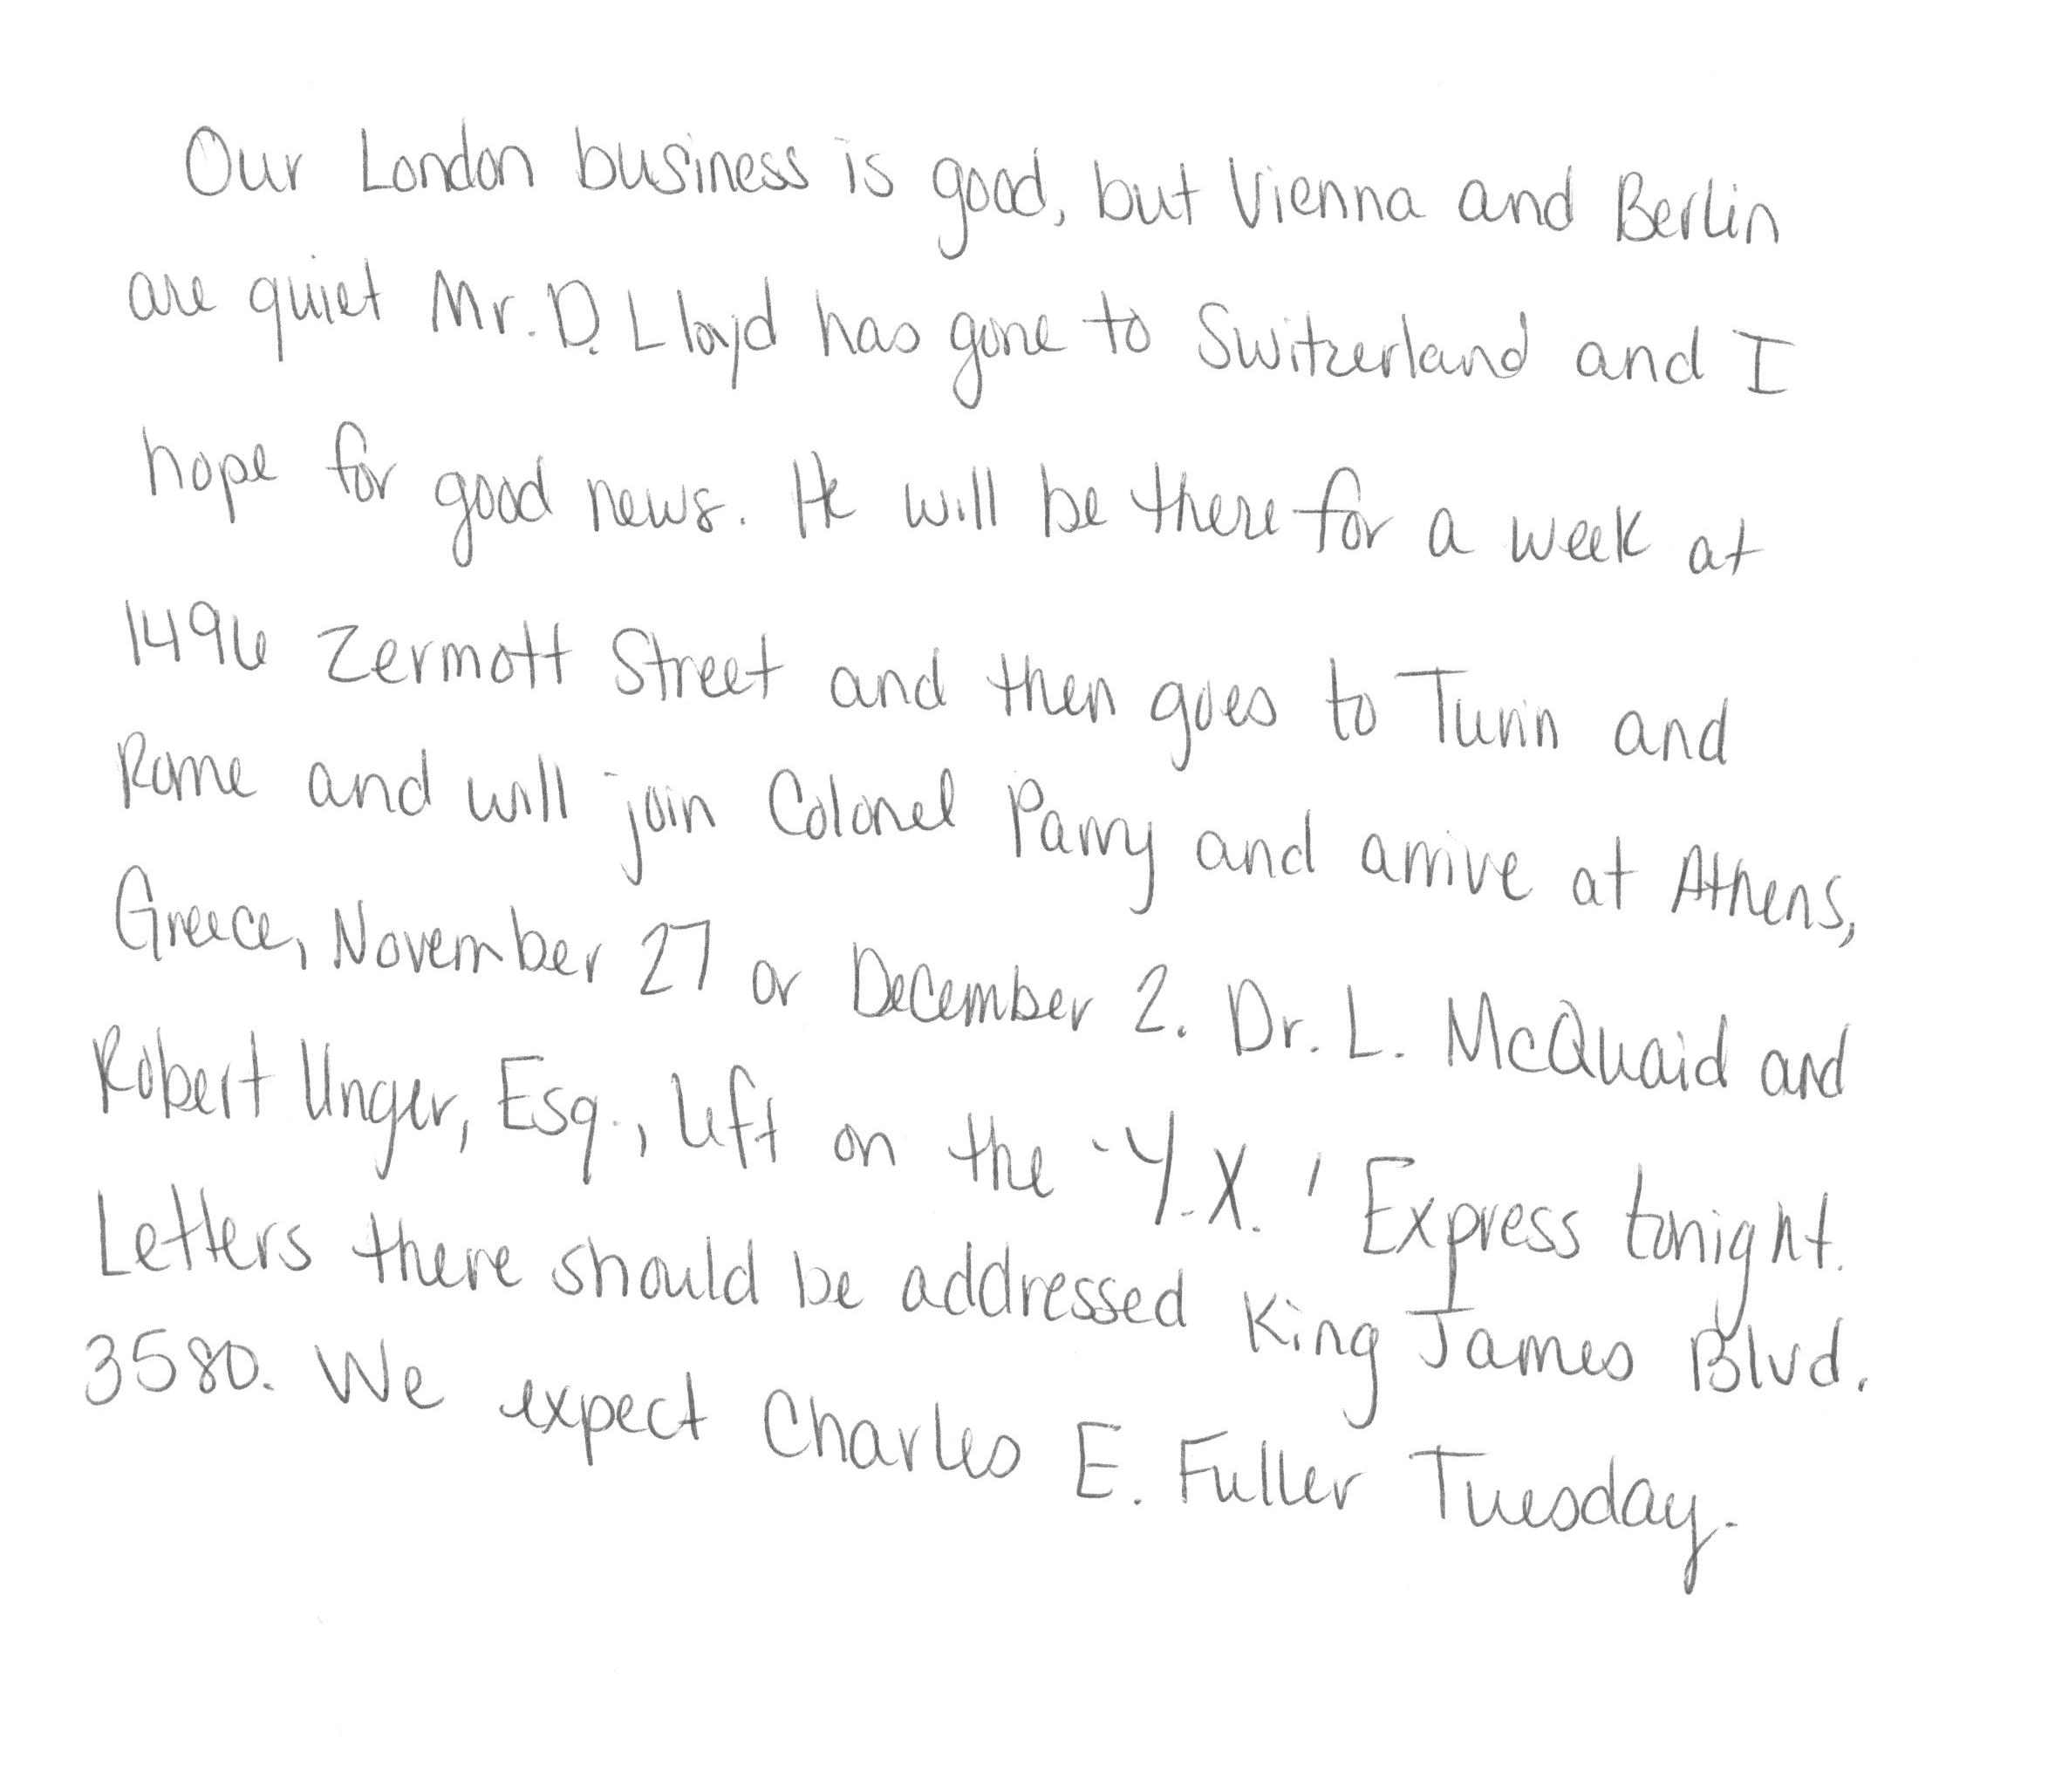 Our London business is good, but Vienna and Berlin
are quiet Mr. D. Lloyd has gone to Switzerland and I
hope for good news. He will be there for a week at
1496 Zermott Street and then goes to Turin and
Rome and will join Colonel Parry and arrive at Athens,
Greece, November 27 or December 2. Dr. L. McQuaid and
Robert Unger, Esq., left on the 'Y.X.' Express tonight.
Letters there should be addressed King James Blvd.
3580. We expect Charles E. Fuller Tuesday.